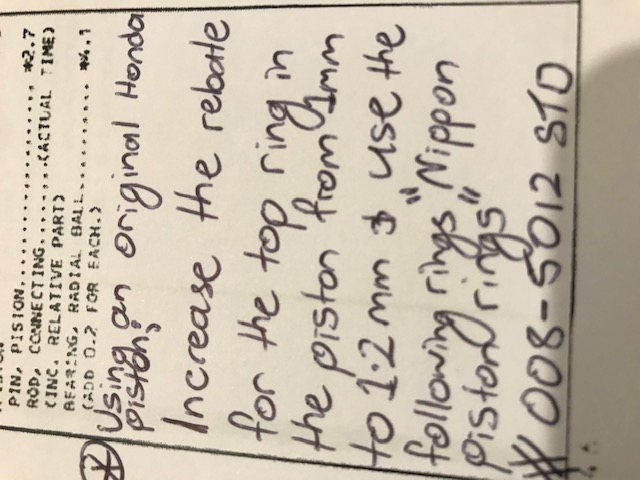 PIN, PISTON.............. *2.7
ROD, CONNECTING........(ACTUAL TIME)
(INC. RELATIVE PART)
BEARING, RADIAL BALL........ *4.1
(ADD 0.2 FOR EACH.)
* Using an original Honda
piston;
Increase the rebate
for the top ring in
the piston from 1mm
to 1.2mm & use the
following rings "Nippon
piston rings"
# 008-5012 STD